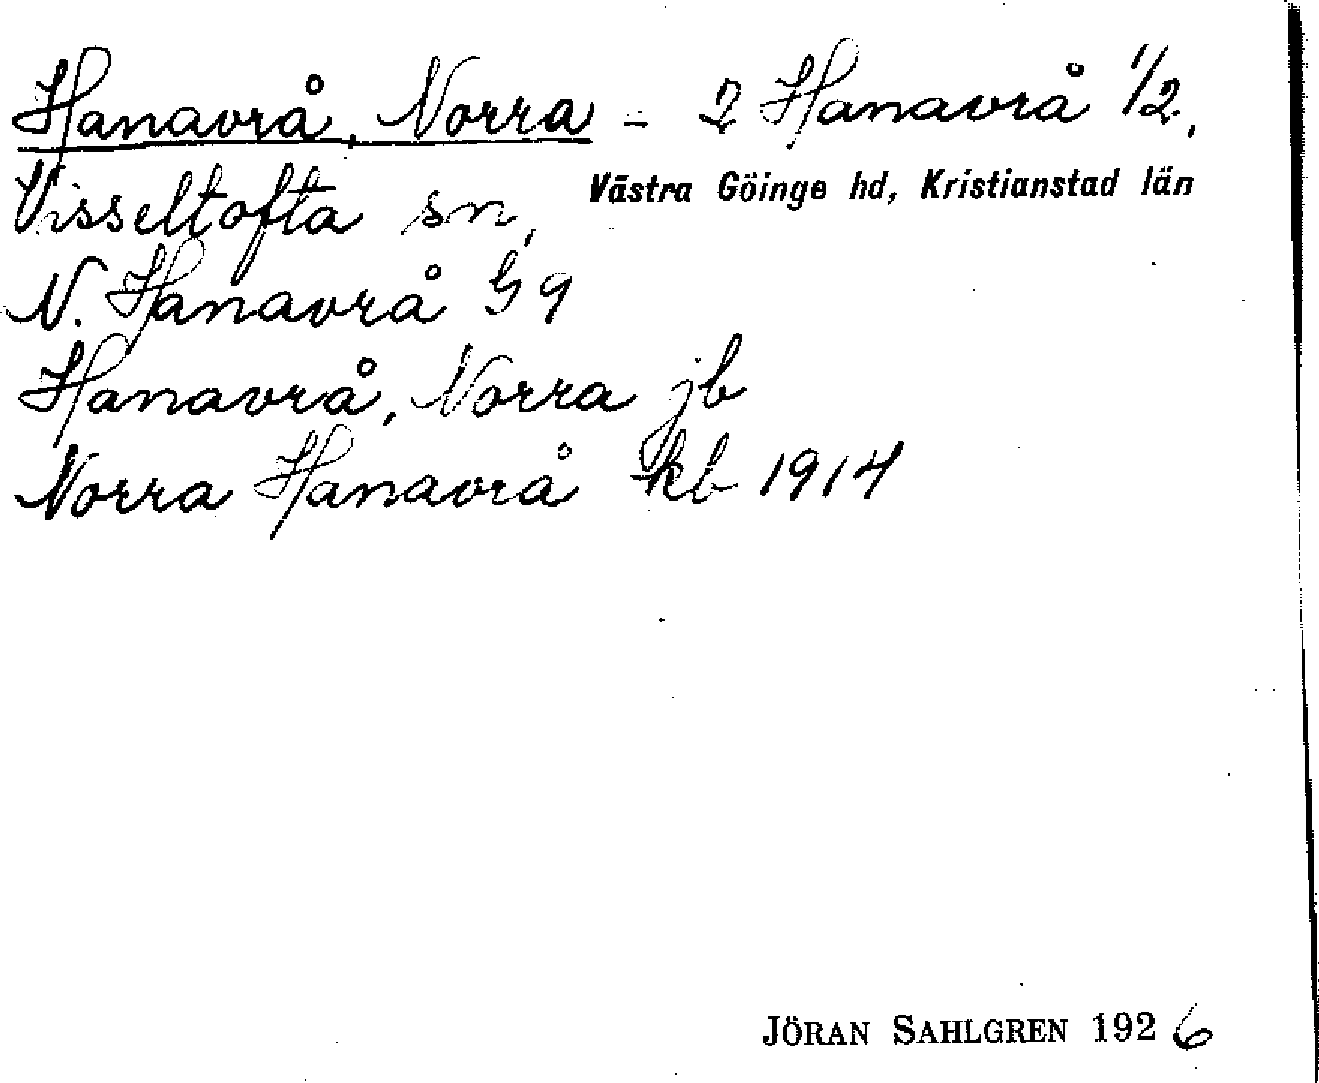 Hanavrå, Norra - 2 Hanavrå 1/2,
Visseltofta sn, Västra Göinge hd, Kristianstad län
N. Hanavrå G 9
Hanavrå, Norra jb
Norra Hanavrå kb 1914
JÖRAN SAHLGREN 1926